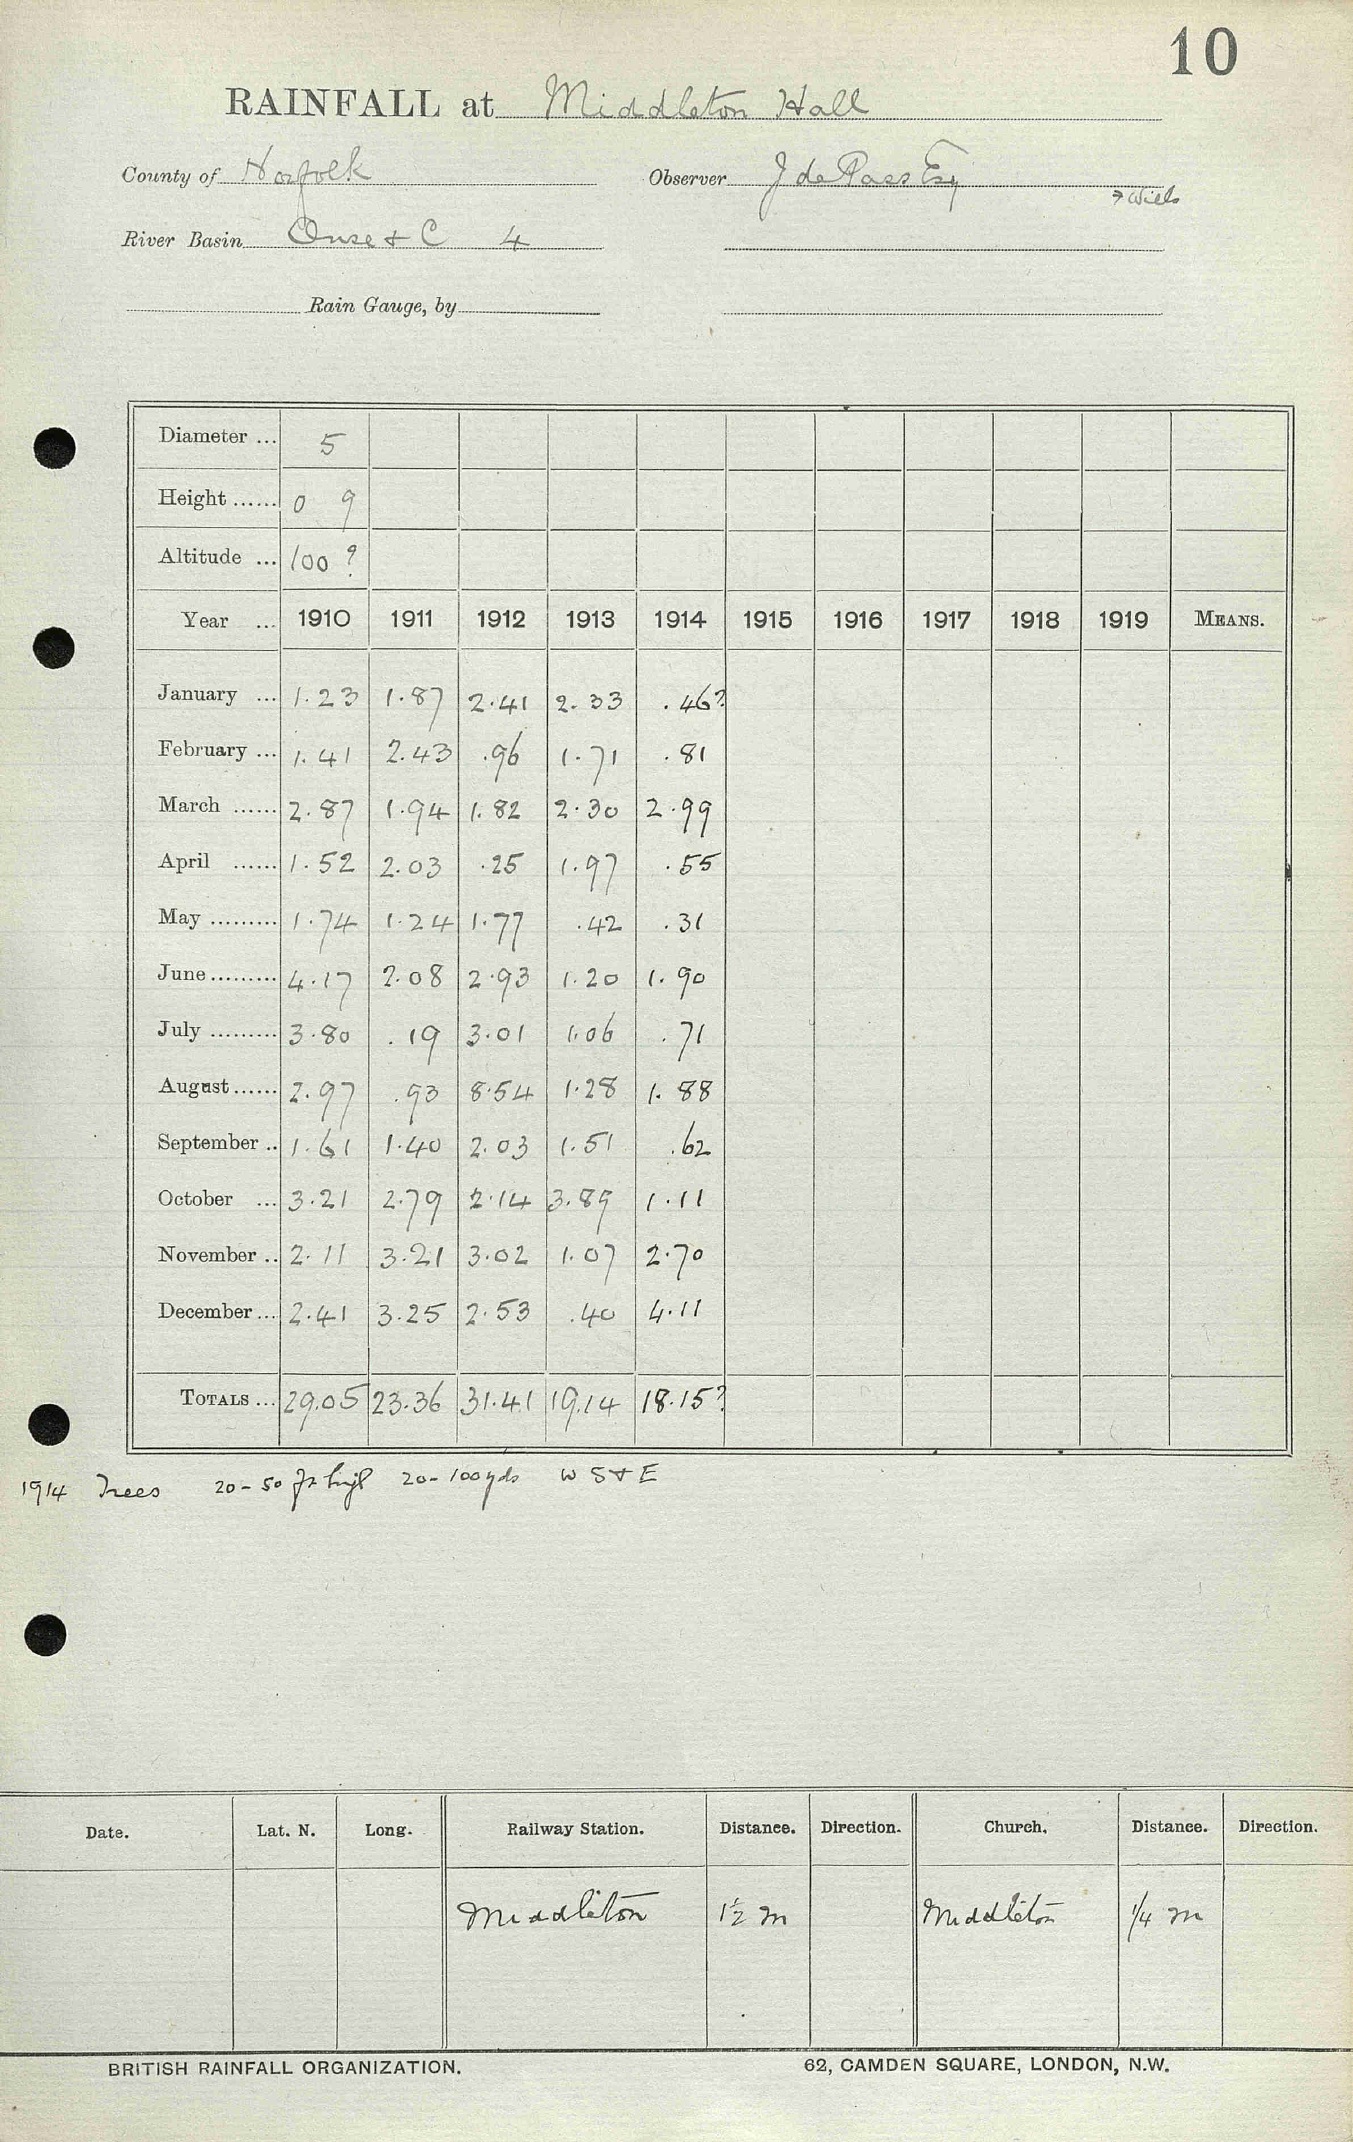 10
RAINFALL at Middleton Hall
County of Norfolk Observer J de Pass Esq
River Basin Ouse + C 4
Rain Gauge, by
Diameter ... 5
Height ...... 0 9
Altitude ... 100 ?
Year ... 1910 1911 1912 1913 1914 1915 1916 1917 1918 1919 MEANS.
January ... 1.23 1.87 2.41 2.33 .46?
February ... 1.41 2.43 .96 1.71 .81
March ...... 2.87 1.94 1.82 2.30 2.99
April ...... 1.52 2.03 .25 1.97 .55
May ......... 1.74 1.24 1.77 .42 .31
June ......... 4.17 2.08 2.93 1.20 1.90
July ......... 3.80 .19 3.01 1.06 .71
August ...... 2.97 .93 8.54 1.28 1.88
September .. 1.61 1.40 2.03 1.51 .62
October ... 3.21 2.79 2.14 3.89 1.11
November .. 2.11 3.21 3.02 1.07 2.70
December ... 2.41 3.25 2.53 .40 4.11
TOTALS ... 29.05 23.36 31.41 19.14 18.15?
1914 Trees 20-50 ft high 20-100 yds W S + E
Date. Lat. N. Long. Railway Station. Distance. Direction. Church. Distance. Direction.
Middleton 1½ m Middleton ¼ m
BRITISH RAINFALL ORGANIZATION. 62, CAMDEN SQUARE, LONDON, N.W.